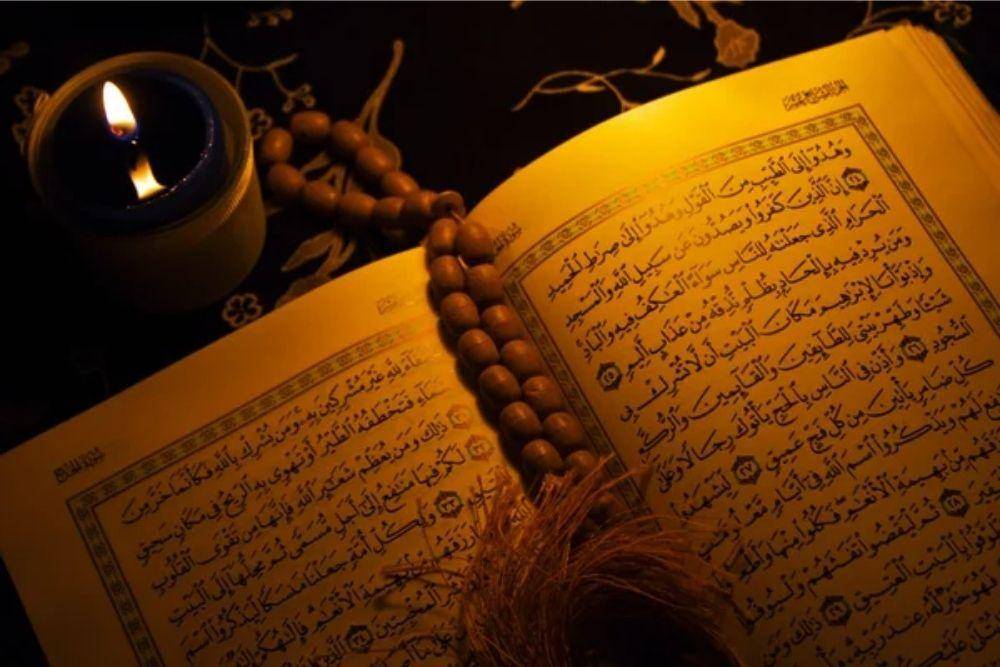 الجزء السابع عشر
سورة الحج
وَهُدُوٓا۟ إِلَى ٱلطَّيِّبِ مِنَ ٱلْقَوْلِ وَهُدُوٓا۟ إِلَىٰ صِرَٰطِ ٱلْحَمِيدِ
٢٤ إِنَّ ٱلَّذِينَ كَفَرُوا۟ وَيَصُدُّونَ عَن سَبِيلِ ٱللَّهِ وَٱلْمَسْجِدِ
ٱلْحَرَامِ ٱلَّذِى جَعَلْنَٰهُ لِلنَّاسِ سَوَآءً ٱلْعَٰكِفُ فِيهِ وَٱلْبَادِ
وَمَن يُرِدْ فِيهِ بِإِلْحَادٍۭ بِظُلْمٍ نُّذِقْهُ مِنْ عَذَابٍ أَلِيمٍ ٢٥
وَإِذْ بَوَّأْنَا لِإِبْرَٰهِيمَ مَكَانَ ٱلْبَيْتِ أَن لَّا تُشْرِكْ بِى
شَيْـًٔا وَطَهِّرْ بَيْتِىَ لِلطَّآئِفِينَ وَٱلْقَآئِمِينَ وَٱلرُّكَّعِ
ٱلسُّجُودِ ٢٦ وَأَذِّن فِى ٱلنَّاسِ بِٱلْحَجِّ يَأْتُوكَ رِجَالًا وَعَلَىٰ
كُلِّ ضَامِرٍ يَأْتِينَ مِن كُلِّ فَجٍّ عَمِيقٍ ٢٧ لِّيَشْهَدُوا۟
لَهُمْ وَيَذْكُرُوا۟ ٱسْمَ ٱللَّهِ فِىٓ أَيَّامٍ
مِّنۢ بَهِيمَةِ ٱلْأَنْعَٰمِ فَكُلُوا۟ مِنْهَا وَأَطْعِمُوا۟
٢٨ ثُمَّ لْيَقْضُوا۟ تَفَثَهُمْ وَلْيُوفُوا۟
بِٱلْبَيْتِ ٱلْعَتِيقِ ٢٩ ذَٰلِكَ وَمَن
فَهُوَ خَيْرٌ لَّهُۥ عِندَ رَبِّهِۦ
سورة الحج
لِلَّهِ غَيْرَ مُشْرِكِينَ بِهِۦ وَمَن يُشْرِكْ بِٱللَّهِ فَكَأَنَّمَا خَرَّ مِنَ
فَتَخْطَفُهُ ٱلطَّيْرُ أَوْ تَهْوِى بِهِ ٱلرِّيحُ فِى مَكَانٍ سَحِيقٍ
ذَٰلِكَ وَمَن يُعَظِّمْ شَعَٰٓئِرَ ٱللَّهِ فَإِنَّهَا مِن تَقْوَى ٱلْقُلُوبِ
لَكُمْ فِيهَا مَنَٰفِعُ إِلَىٰٓ أَجَلٍ مُّسَمًّى ثُمَّ مَحِلُّهَآ إِلَى ٱلْبَيْتِ
٣٣ وَلِكُلِّ أُمَّةٍ جَعَلْنَا مَنسَكًا لِّيَذْكُرُوا۟ ٱسْمَ
ٱلْأَنْعَٰمِ فَإِلَٰهُكُمْ
ٱلْمُخْبِتِينَ ٣٤